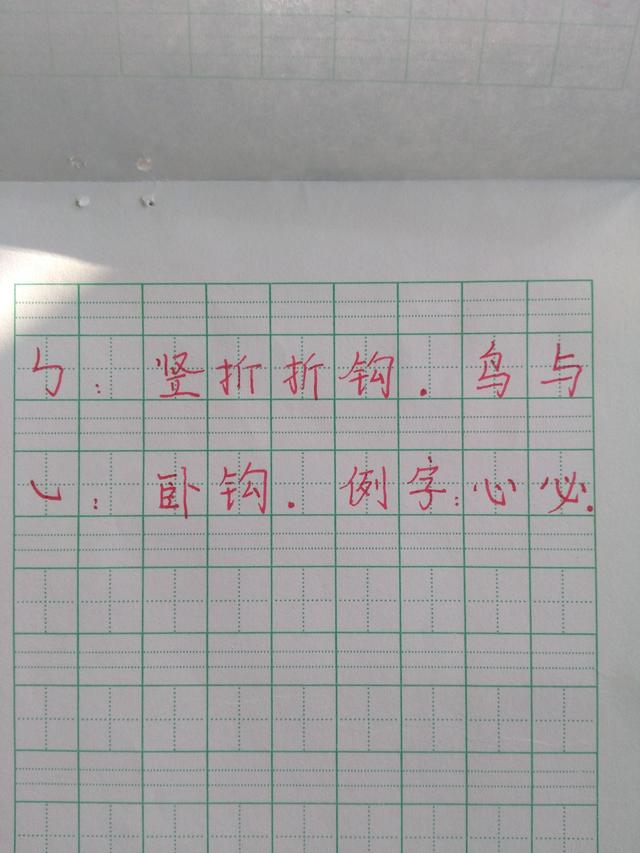 ㇉：竖折折钩.鸟与
㇃：卧钩.例字:心必.